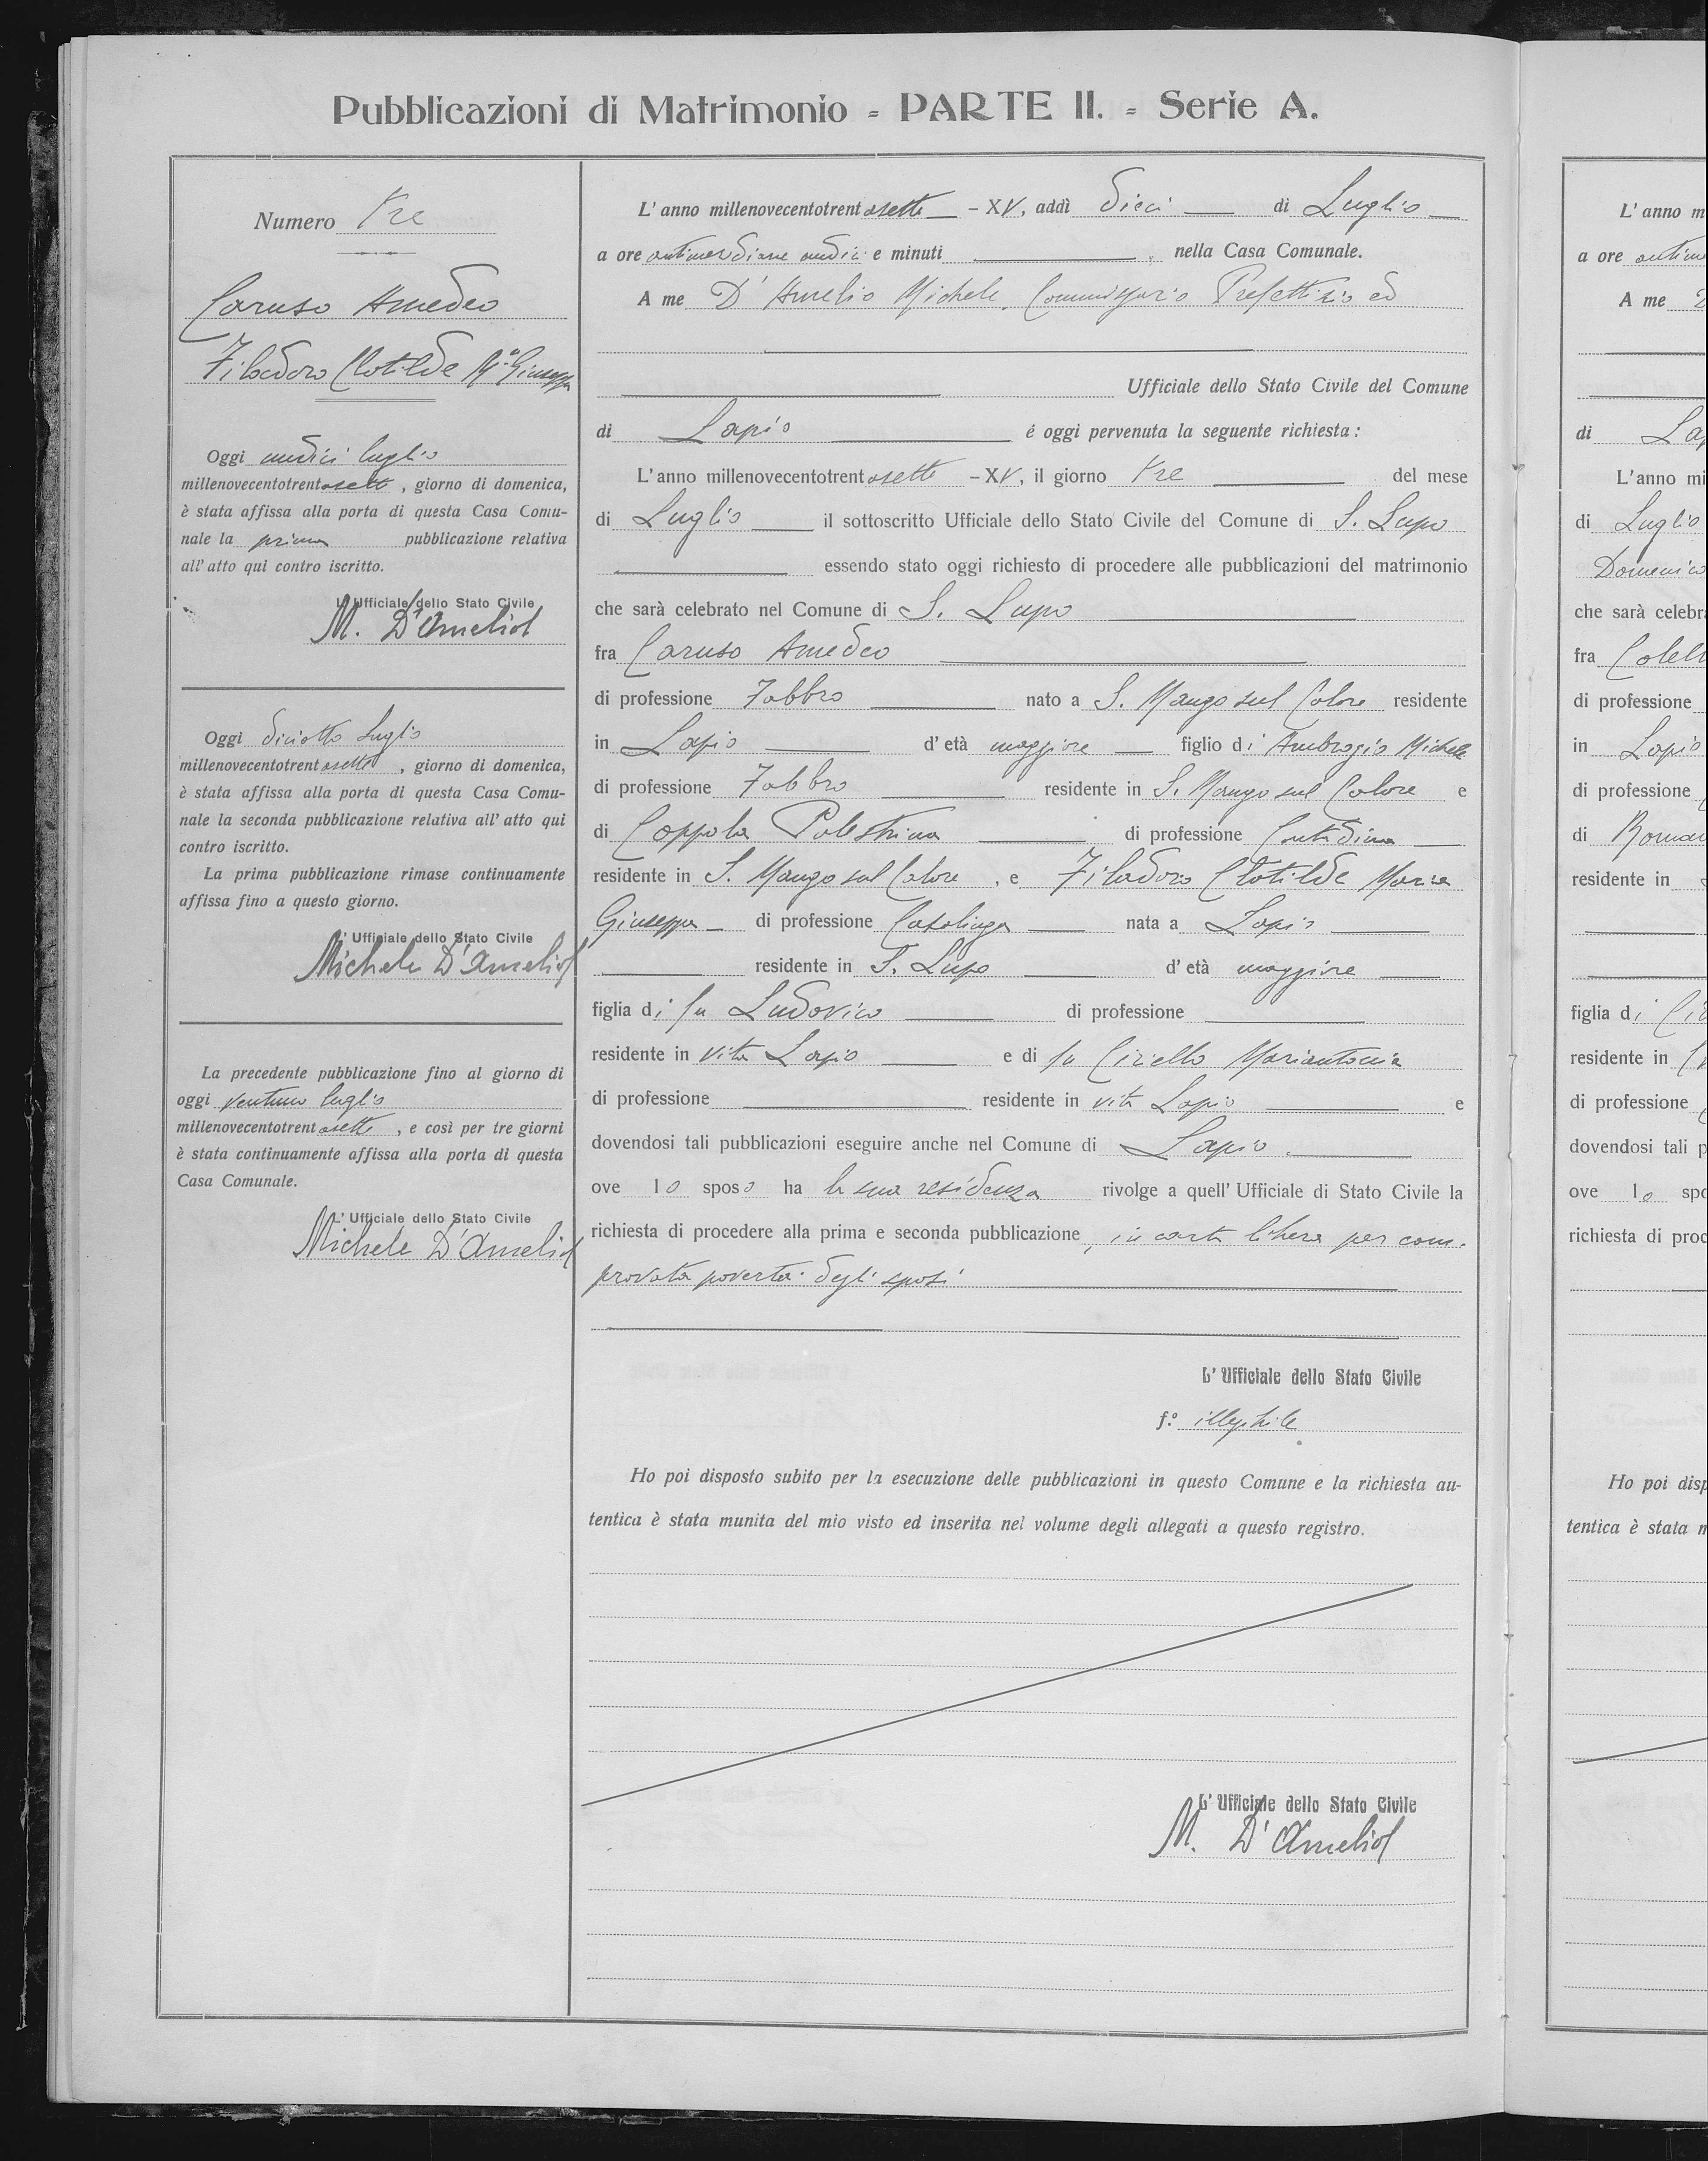 Pubblicazioni di Matrimonio = PARTE II. = Serie A.
Numero Tre
Caruso Amedeo
Filadoro Clotilde Mª Giuseppa
Oggi undici luglio
millenovecentotrentasette, giorno di domenica,
è stata affissa alla porta di questa Casa Comu-
nale la prima pubblicazione relativa
all' atto qui contro iscritto.
L' Ufficiale dello Stato Civile
M. D'Amelio
Oggi diciotto Luglio
millenovecentotrentasette, giorno di domenica,
è stata affissa alla porta di questa Casa Comu-
nale la seconda pubblicazione relativa all' atto qui
contro iscritto.
La prima pubblicazione rimase continuamente
affissa fino a questo giorno.
L' Ufficiale dello Stato Civile
Michele D'Amelio
La precedente pubblicazione fino al giorno di
oggi ventuno luglio
millenovecentotrentasette, e così per tre giorni
è stata continuamente affissa alla porta di questa
Casa Comunale.
L' Ufficiale dello Stato Civile
Michele D'Amelio
L' anno millenovecentotrentasette - XV, addì dieci di Luglio
a ore antimeridiane undici e minuti nella Casa Comunale.
A me D'Amelio Michele Commissario Prefettizio ed
Ufficiale dello Stato Civile del Comune
di Lapio é oggi pervenuta la seguente richiesta:
L' anno millenovecentotrentasette - XV, il giorno tre del mese
di Luglio il sottoscritto Ufficiale dello Stato Civile del Comune di S. Lupo
essendo stato oggi richiesto di procedere alle pubblicazioni del matrimonio
che sarà celebrato nel Comune di S. Lupo
fra Caruso Amedeo
di professione Fabbro nato a S. Mango sul Calore residente
in Lapio d' età maggiore figlio di Ambrogio Michele
di professione Fabbro residente in S. Mango sul Calore e
di Coppola Palestrina di professione Contadina
residente in S. Mango sul Calore, e Filadoro Clotilde Maria
Giuseppa di professione Casalinga nata a Lapio
residente in S. Lupo d' età maggiore
figlia di fu Ludovico di professione
residente in vita Lapio e di fu Ciriello Mariantonia
di professione residente in vita Lapio e
dovendosi tali pubblicazioni eseguire anche nel Comune di Lapio
ove lo sposo ha la sua residenza rivolge a quell' Ufficiale di Stato Civile la
richiesta di procedere alla prima e seconda pubblicazione, in carta libera per com-
provata povertà degli sposi
L' Ufficiale dello Stato Civile
f.º illegibile
Ho poi disposto subito per la esecuzione delle pubblicazioni in questo Comune e la richiesta au-
tentica è stata munita del mio visto ed inserita nel volume degli allegati a questo registro.
L' Ufficiale dello Stato Civile
M. D'Amelio
L' anno m
a ore antime
A me D
di Lap
L' anno mi
di Luglio
Domenico
che sarà celebr
fra
di professione
in Lapio
di professione
di
residente in
figlia di
residente in
di professione
dovendosi tali p
ove lo spo
richiesta di proc
Ho poi disp
tentica è stata m